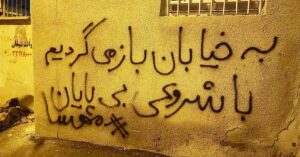 به خیابان بازمی گردیم
با شروعی بی پایان